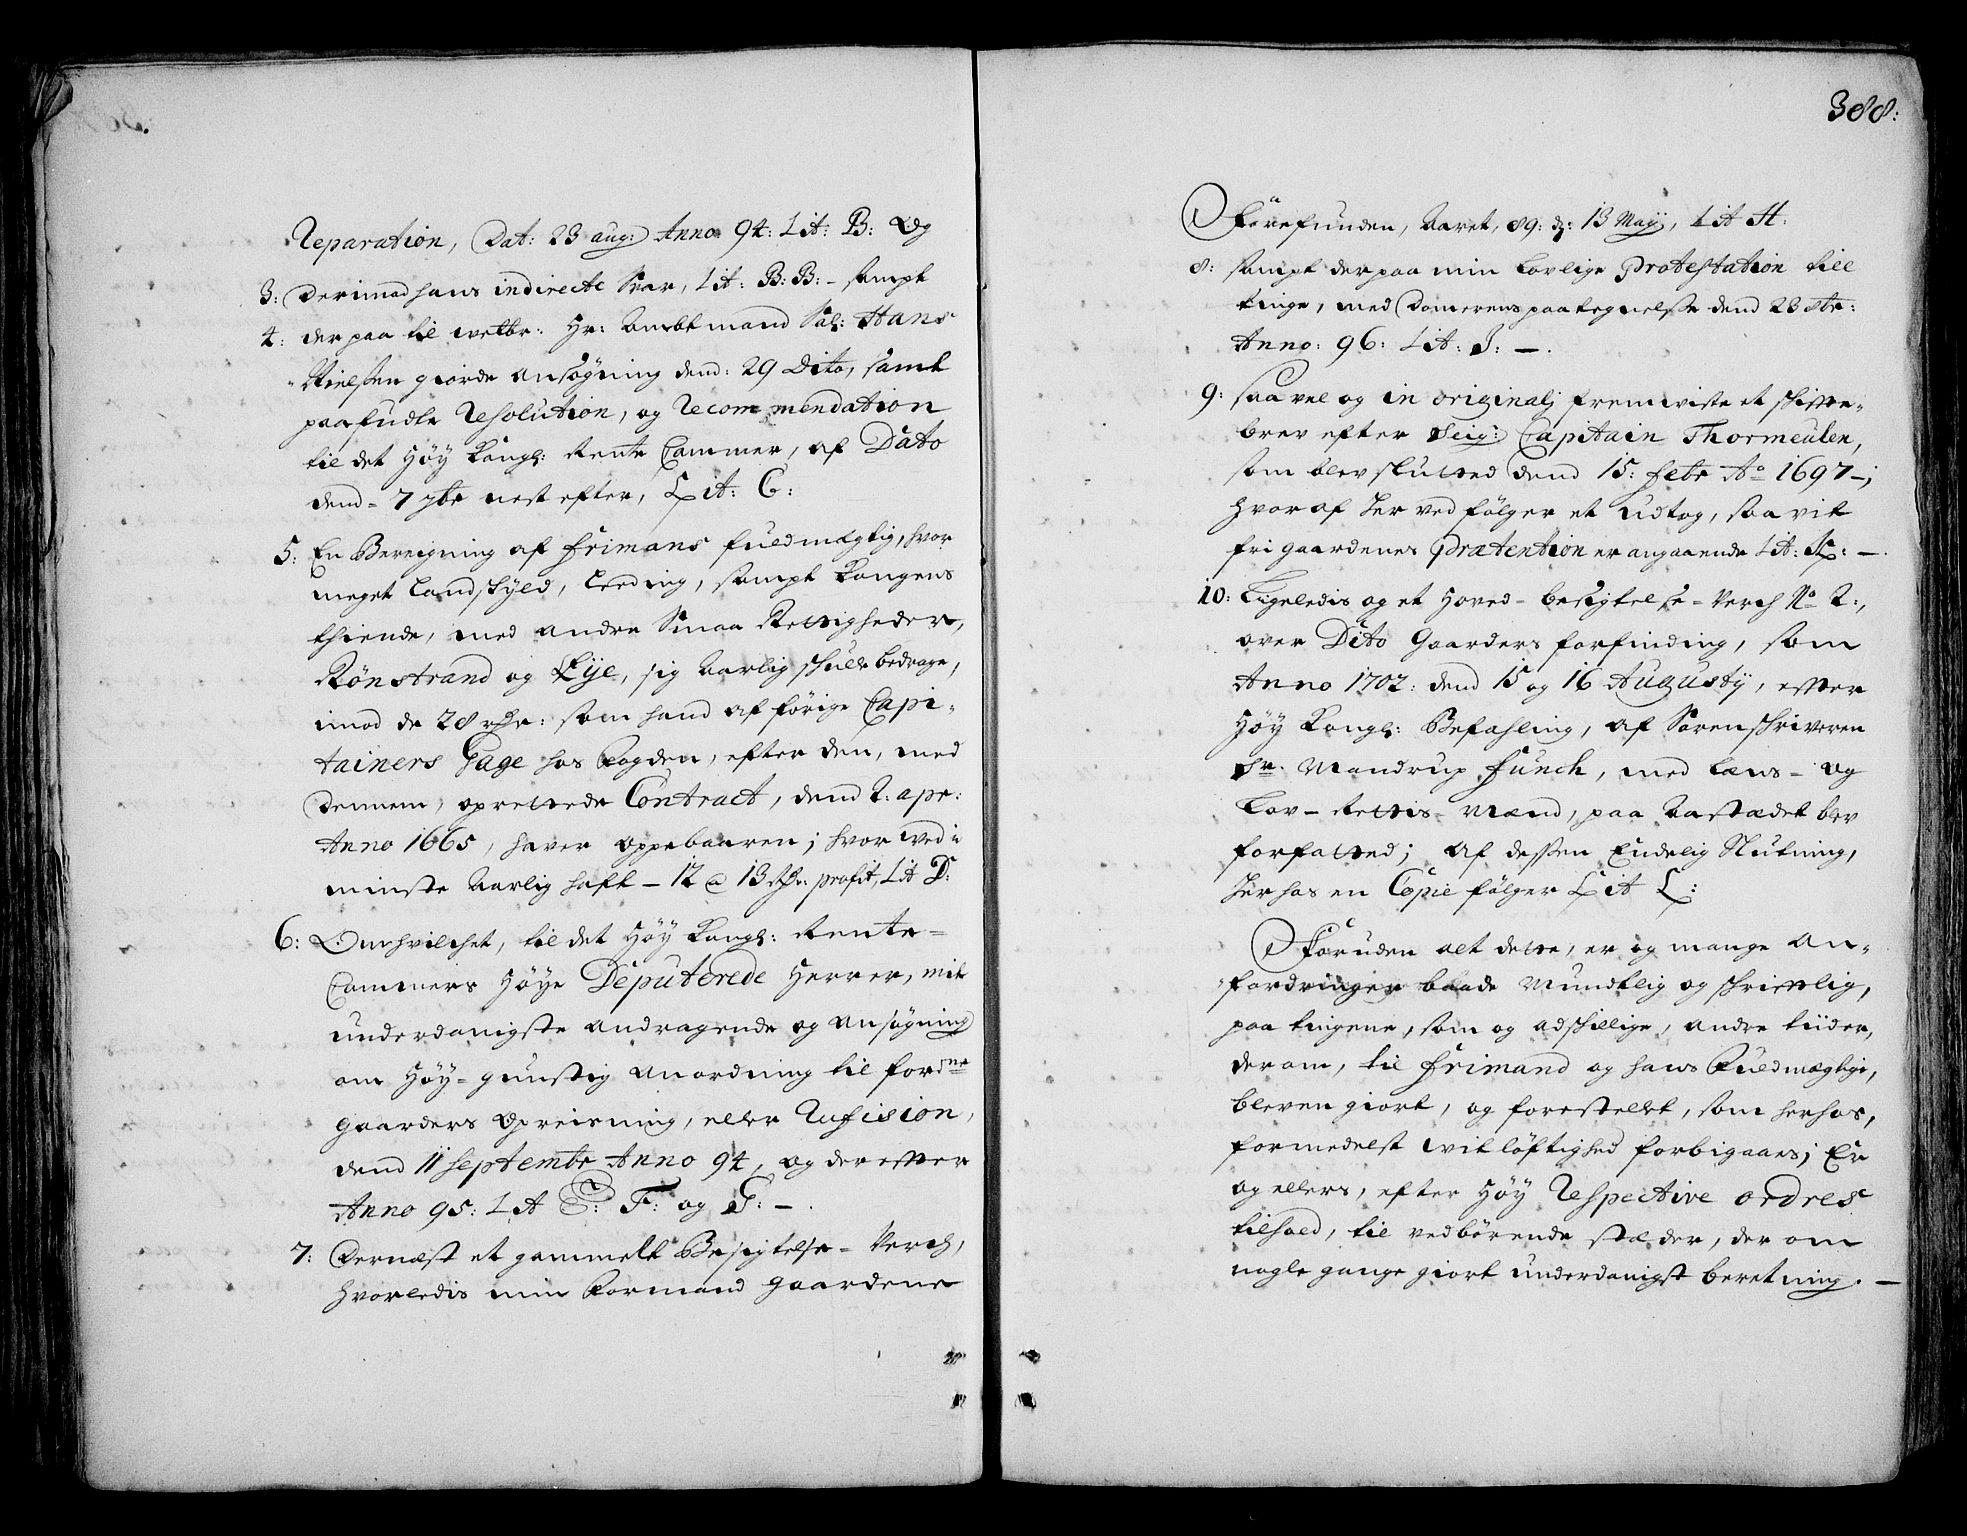 Reparation, Dat: 23 aug: Anno 94: Lit: B: Og
3: Derimod hans indirecte Svar, Lit: B: B: – sampt
4: der paa til welbr: Hr: Ambtmand Sal: Hans
Nielsen giorde ansøgning dend: 29 Dito, samt
paafudte Resolution, og Recommendation
til det Høy Kongl: Rente Cammer, af Dato
dend – 7 7br nest efter, Lit: C:
5: En Beregning af Frimans fuldmægtig, hvor
meget Landskyld, Leeding, sampt Kongens
thiende, med andre Smaa Rettigheder,
Rønstrand og Eye, sig Aarlig skulle bedrage,
imod de 28 rdr: som hand af förige Capi-
tainers Gage hos Fogden, efter den, med
Dennem, oprettede Contract, dend 2: apr:
Anno 1665, haver oppebaaren; hvor wed i
minste Aarlig haft – 12 a 13 rdr: profit, Lit D:
6: Om hvilchet, til det Høy Kongl: Rente-
Cammers Høye Deputerede Herrer, mit
underdanigste andragende og ansøgning
om Høy-gunstig anordning til fordne
gaarders opreisning, eller Rufision,
dend 11 Septembr Anno 94, og der effter
Anno 95: Lit E: F: og G: –.
7: Dernæst et gammelt Besigtelse-Verch,
hvorledis min Formand gaardene
388:
Forefunden, Aaret, 89: d: 13 Maij, Lit H:
8: sampt der paa min Lovlige Protestation till
tinge, med Domerens paategnelse dend 23 8br:
Anno: 96: Lit: J: –.
9: saa vel og in originalj fremwiste et skiffte-
brev efter Seig: Capitain Thormeulen,
som blev sluttet dend 15: Febr Ao 1697 –;
hvoraf her ved følger et udtog, saa vit
fri gaardenes Prætention er angaaende Lit: K: –.
10: Ligeledis og et Hoved-besigtelse-Verch No 2:,
over Dito Gaarders forfinding, som
Anno 1702: dend 15 og 16 Augustij, effter
Høy Kongl: Befahling, af Sorenskriveren
Hr. Mandrup Funch, med Lens- og
Lov-Rettis-Mænd, paa Aastædet blev
forfatted; af dessen Endelig Slutning,
her hos en Copie følger Lit L:
Foruden alt dette, er og mange an-
fordringer baade Mundtlig og skrifftlig,
paa tingene, som og adskillige, andre tiider,
derom, til Frimand og hans Fuldmægtige,
bleven giort, og forestellet, som herhos,
formedelst witløftighed forbigaaes; Er
og ellers, efter Høy Respective ordres
tilhold, til vedbørende stæder, der om
nogle gange giort underdanigst beretning. –